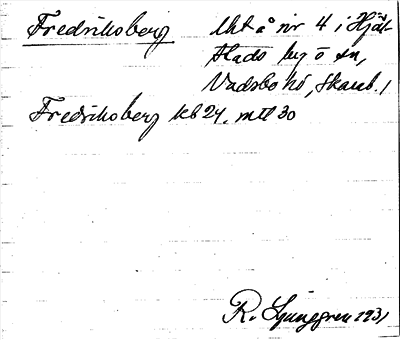 Fredriksberg    lht å nr 4 i Hjäl-
stads by o sn,
Vadsbo hd, Skarab. l
Fredriksberg kb 24. mtl 30
R. Ljunggren 1931